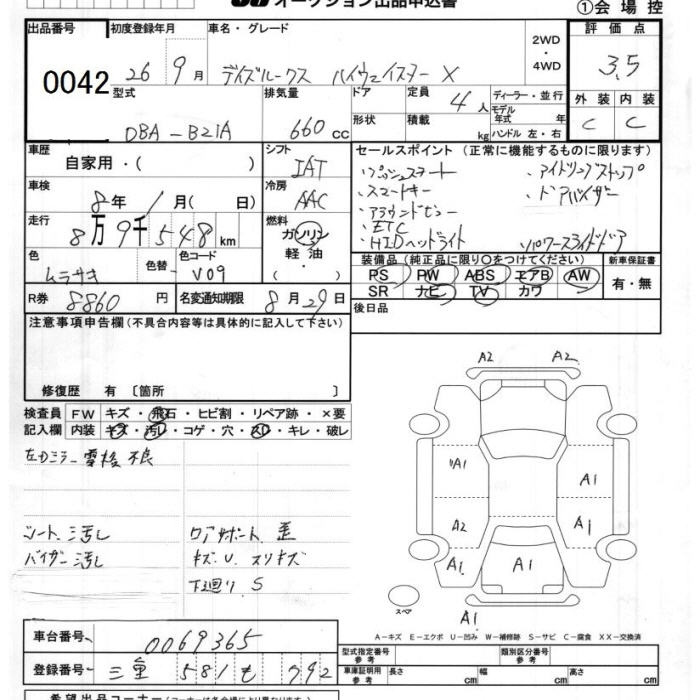 オークション出品申込書
①会場控
出品番号 初度登録年月 車名・グレード 2WD・4WD 評価点
0042 26 9月 デイズルークス ハイウェイスター X 3.5
型式 排気量 ドア 定員 4人 ディーラー・並行 外装 内装
モデル年式 年
DBA-B21A 660cc 形状 積載 kg ハンドル 左・右 C C
車歴 シフト セールスポイント(正常に機能するものに限ります)
自家用・( ) IAT ・プッシュスタート ・アイドリングストップ
車検 冷房 ・スマートキー ・ドアバイザー
8年 1月( 日) AAC ・アラウンドビュー
走行 燃料 ・ETC
8万9千548km ガソリン ・HIDヘッドライト ・パワースライドドア
色 色替 色コード 軽油 装備品(純正品に限り○をつけてください) 新車保証書
ムラサキ V09 ・( ) PS PW ABS エアB AW 有・無
R券 8860円 名変通知期限 8月29日 SR ナビ TV カワ
注意事項申告欄(不具合内容等は具体的に記入して下さい) 後日品
修復歴 有 〔箇所 〕
検査員 FW キズ・飛石・ヒビ割・リペア跡・×要
記入欄 内装 キズ・汚レ・コゲ・穴・スレ・キレ・破レ
A2 A2
左Dミラー電格不良
A1 A1
シート汚し ロアサポート歪
A2 A1
バイザー汚し キズ.U.スリキズ
A1 A1 A1
下廻りS
スペア
A1
A-キズ E-エクボ U-凹み W-補修跡 S-サビ C-腐食 XX-交換済
車台番号 0069365
型式指定番号 参考 類別区分番号 参考
登録番号 三重 581 も 792
車庫証明用 参考 長さ cm 幅 cm 高さ cm
希望出品コーナー